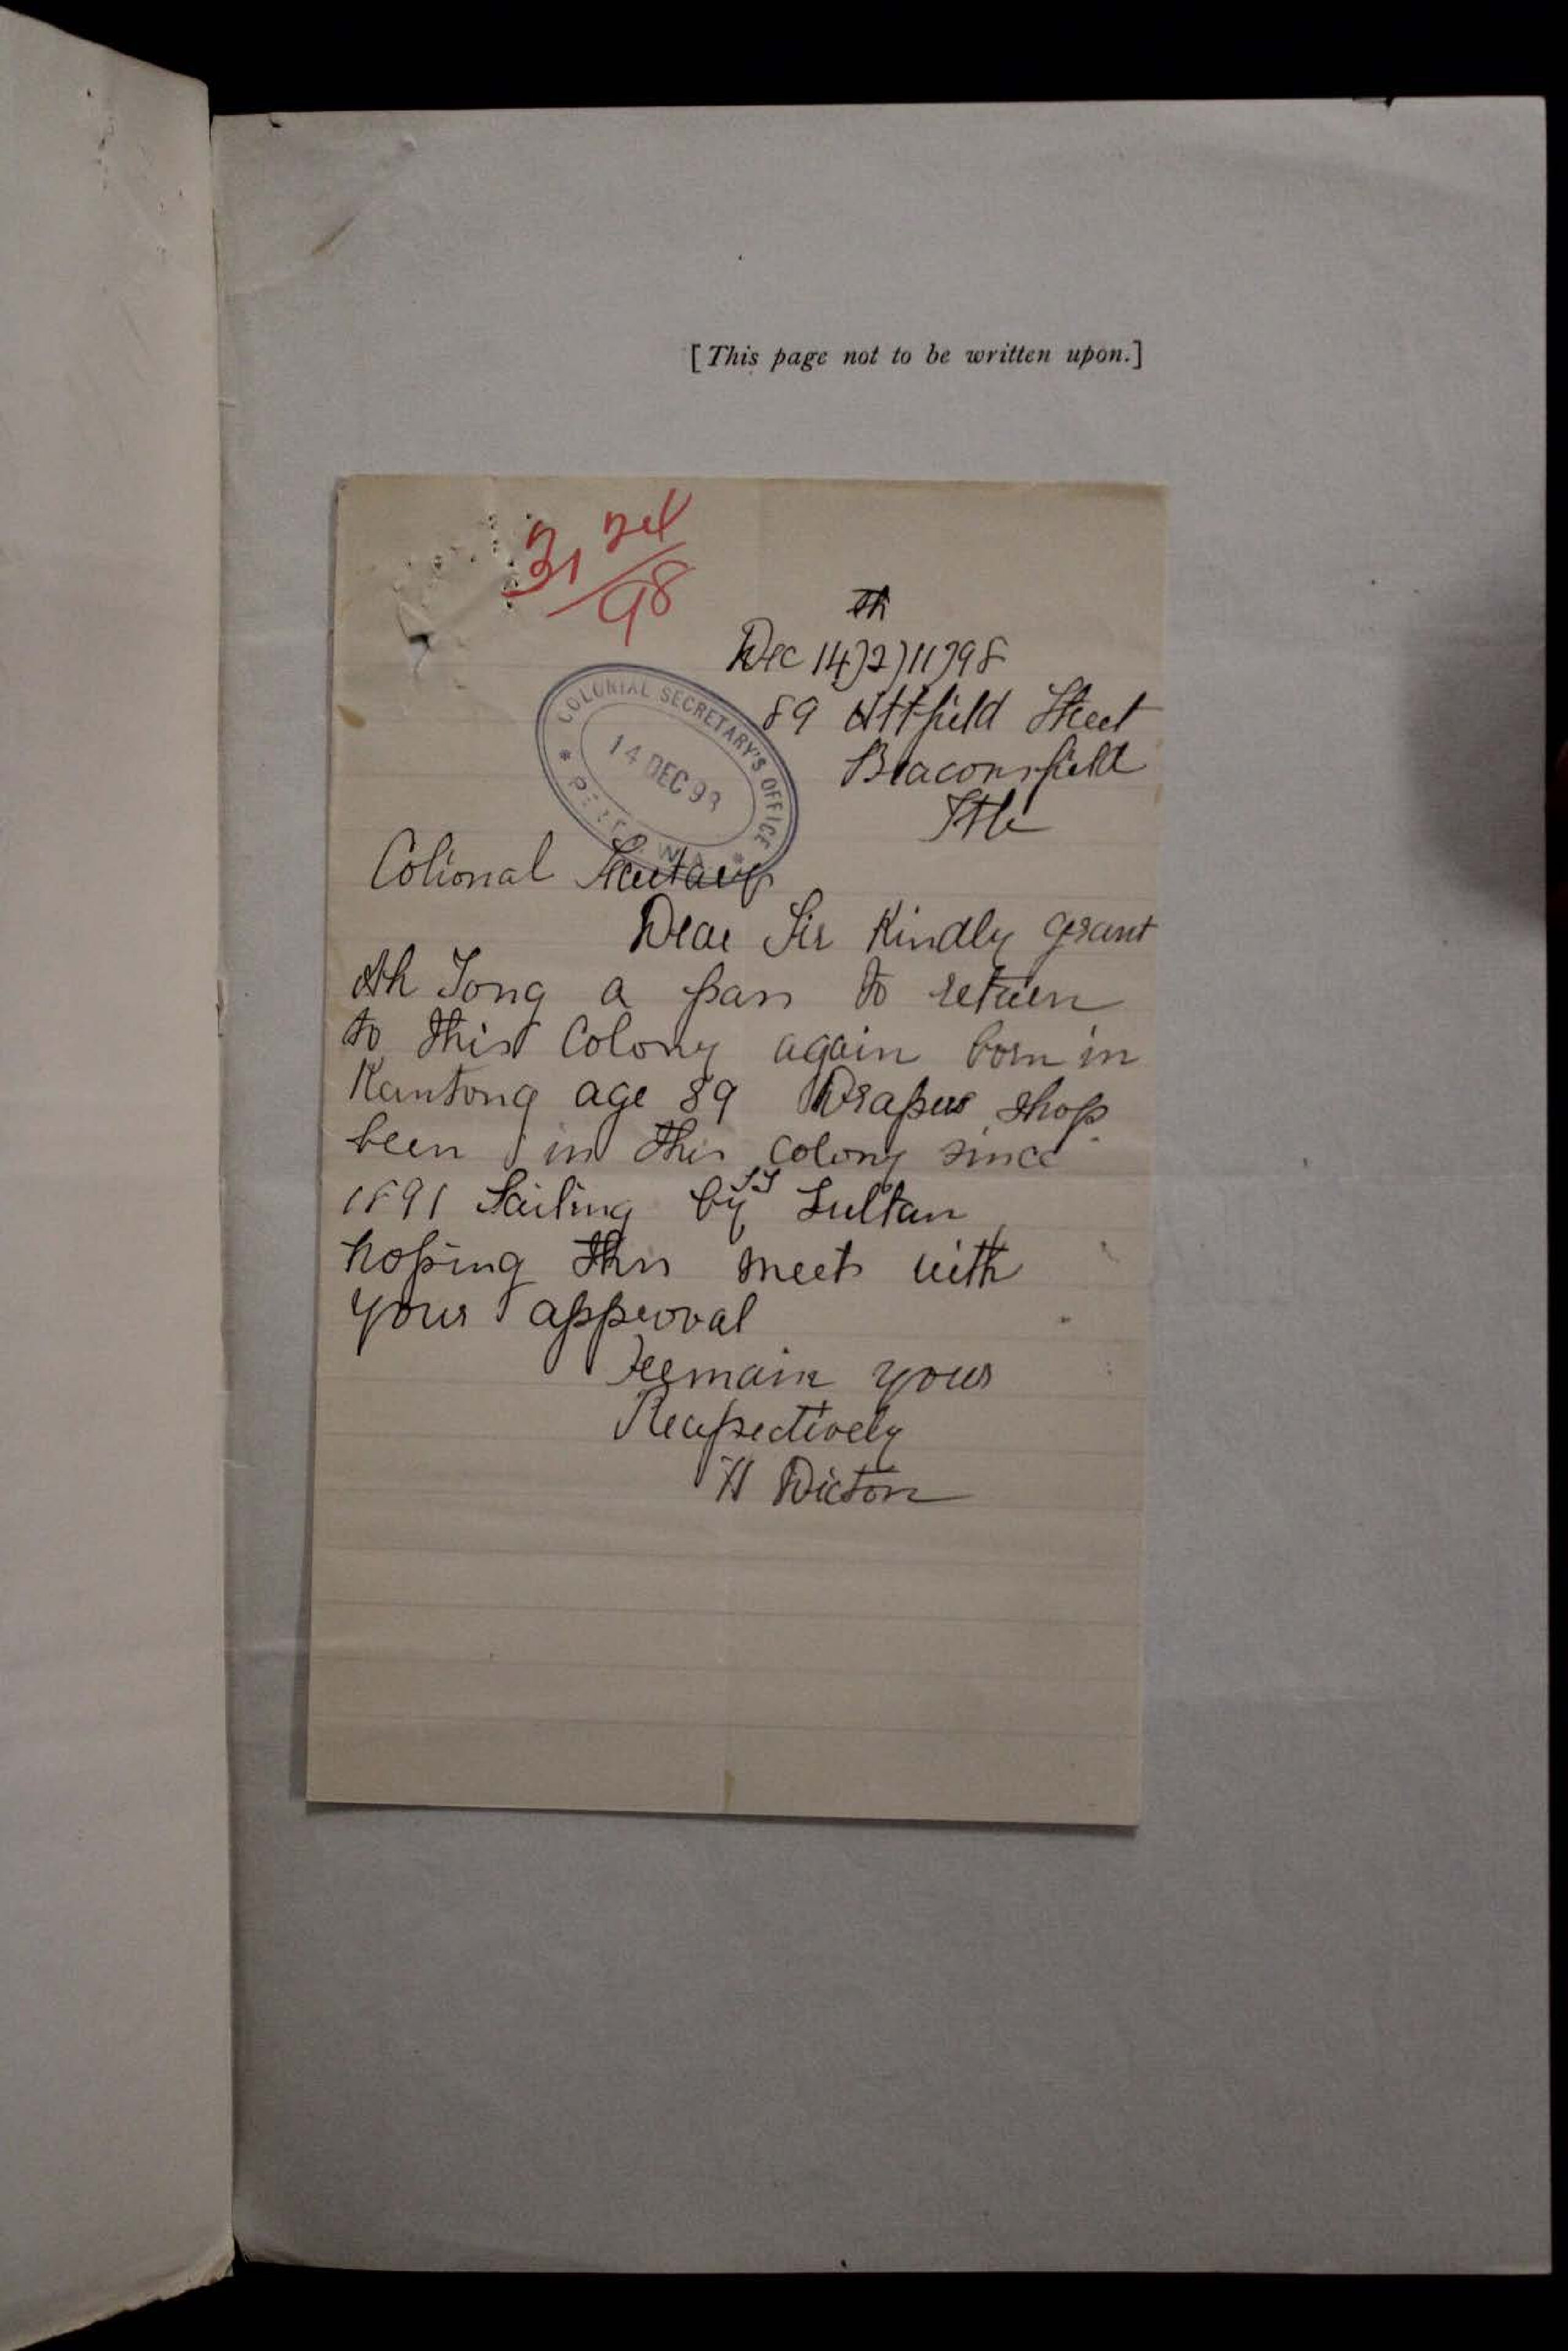 [This page not to be written upon.]
3124/98
th
Dec 14)2)11)98
89 Attfield Street
Beaconsfield
Ftle
COLONIAL SECRETARY'S OFFICE
14 DEC 98
PERTH. W.A.
Colional Secutary
Dear Sir Kindly grant
Ah Tong a pass to return
to this Colony again born in
Kantong age 39 Drapers shop
been in this colony since
1891 Sailing by SS Sultan
hoping this meets with
your approval
Remain yours
Respectively
H Dicton